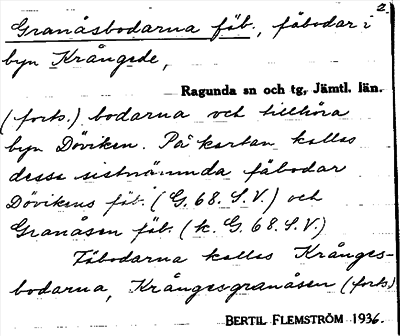 2.
Granåsbodarna fäb., fäbodar i
byn Krångede,
Ragunda sn och tg, Jämtl. län.
(forts.) bodarna och tillhöra
byn Döviken. På kartan kallas
dessa sistnämnda fäbodar
Dövikens fäb. (G. 68. S.V.) och
Granåsen fäb. (k. G. 68. S.V.)
Fäbodarna kallas Krånges-
bodarna, Krångesgranåsen (forts)
BERTIL FLEMSTRÖM 1936.